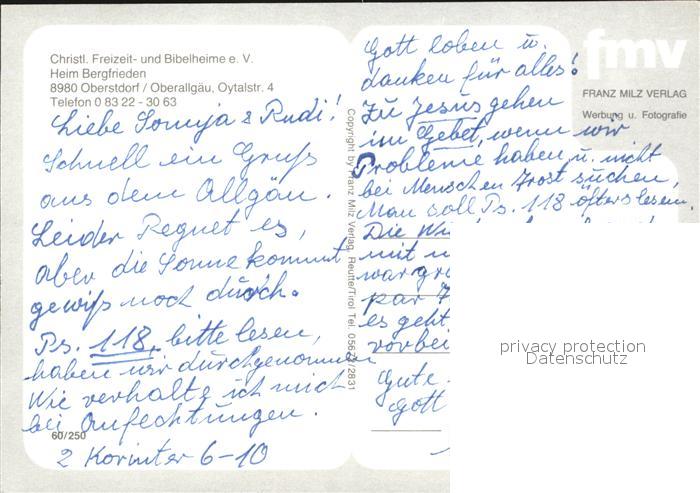 Christl. Freizeit- und Bibelheime e. V.
Heim Bergfrieden
8980 Oberstdorf / Oberallgäu, Oytalstr. 4
Telefon 0 83 22 - 30 63
Liebe Sonuja & Rudi!
Schnell ein Gruß
aus dem Allgäu.
Leider Regnet es,
aber die Sonne kommt
gewiß noch durch.
Ps. 118, bitte lesen,
haben wir durchgenommen
Wie verhalte ich mich
bei Anfechtungen.
60/250
2 Korinter 6-10
Copyright by Franz Milz Verlag, Reutte/Tirol Tel. 2831
Gott loben u.
danken für alles!
Zu Jesus gehen
im Gebet, wenn wir
Probleme haben, u. nicht
bei Menschen Trost suchen,
Man soll Ps. 118 öfters lesen.
Die
mit
war
par
es geht
vorbei
Gute
Gott
fmv
FRANZ MILZ VERLAG
Werbung u. Fotografie
privacy protection
Datenschutz